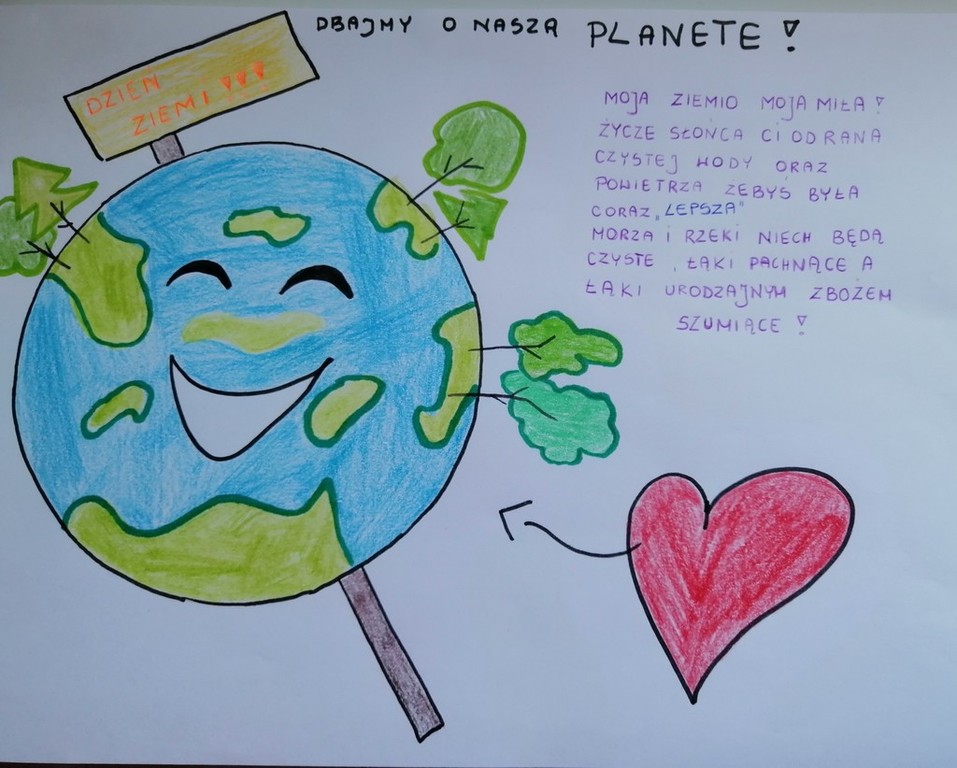 DBAJMY O NASZĄ PLANETE!
DZIEŃ
ZIEMI!!!
MOJA ZIEMIO MOJA MIŁA!
ŻYCZE SŁOŃCA CI OD RANA
CZYSTEJ WODY ORAZ
POWIETRZA ŻEBYŚ BYŁA
CORAZ „LEPSZA"
MORZA I RZEKI NIECH BĘDĄ
CZYSTE, ŁĄKI PACHNĄCE A
ŁĄKI URODZAJNYM ZBOŻEM
SZUMIĄCE!